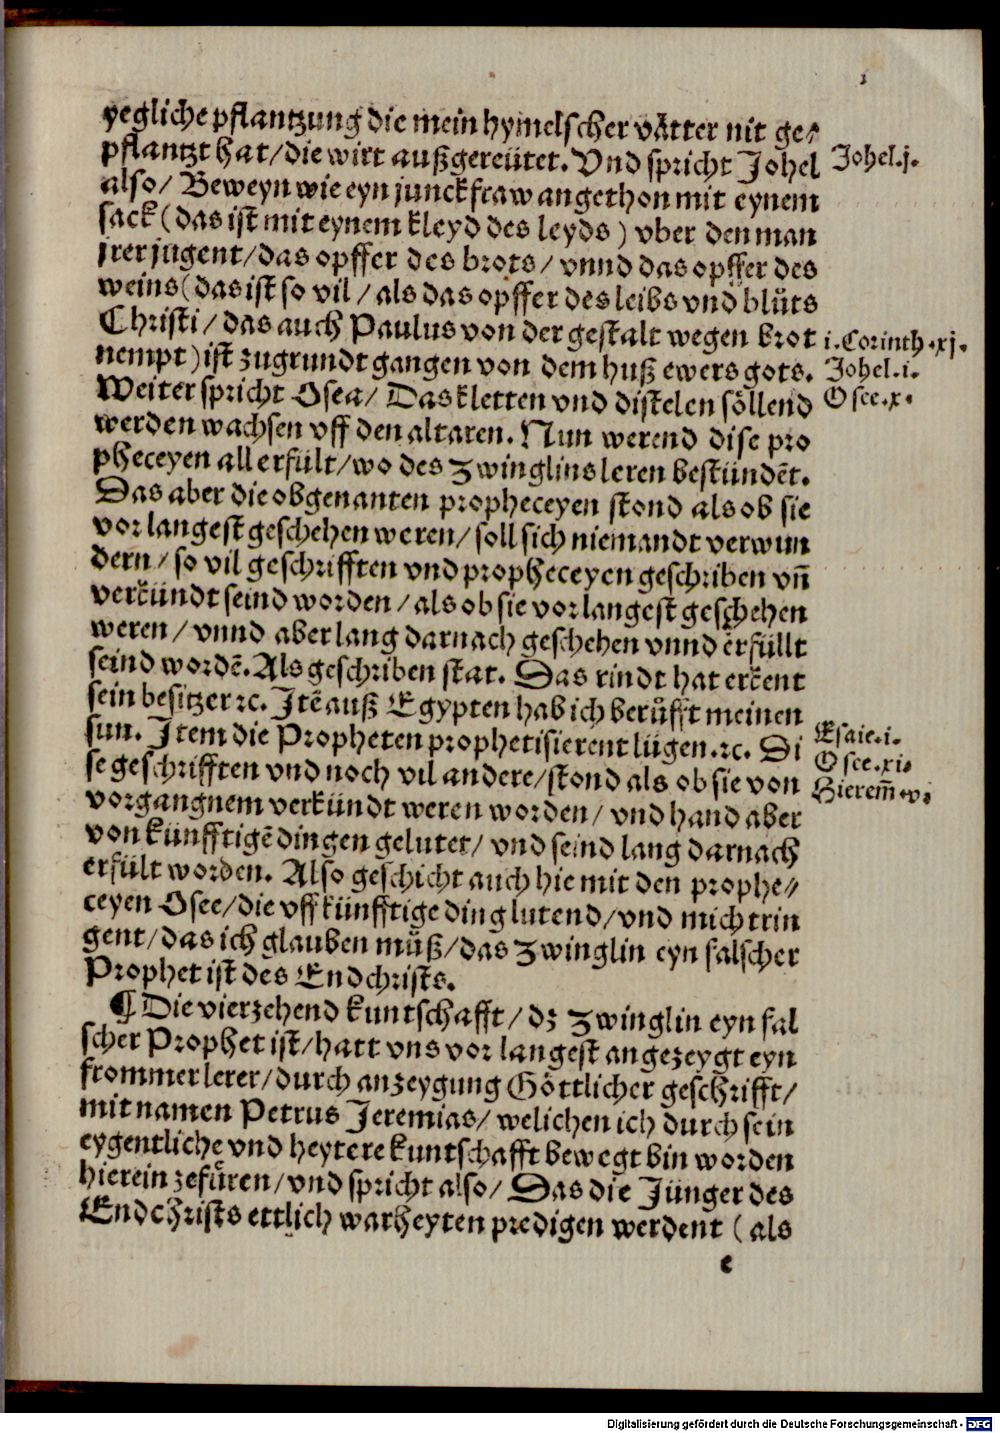 yegliche pflantzung die mein hymelscher vätter nit ge⸗
pflantzt hat/ die wirt außgereütet. Vnd spricht Johel
Johel.j.
also/ Beweyn wie eyn junckfraw angethon mit eynem
sack (das ist mit eynem kleyd des leyds) vber den man
jrer jugent/ das opffer des brots/ vnnd das opffer des
weins (das ist so vil/ als das opffer des leibs vnd blůts
Christi/ das auch Paulus von der gestalt wegen brot
i.Corinth.xj.
nempt) ist zugrundt gangen von dem huß ewers gots.
Johel.i.
Weiter spricht Osea/ Das kletten vnd distelen söllend
Osee.x.
werden wachsen vff den altaren. Nun werend dise pro
pheceyen all erfült/ wo des Zwinglins leren bestündẽt.
Das aber die obgenanten propheceyen stond als ob sie
vor langest geschehen weren/ soll sich niemandt verwun
dern/ so vil geschrifften vnd propheceyen geschriben vñ
verkündt seind worden/ als ob sie vor langest geschehen
weren/ vnnd aber lang darnach geschehen vnnd erfüllt
seind wordẽ. Als geschriben stat. Das rindt hat erkent
sein besitzer ꝛc. Itẽ auß Egypten hab ich berůfft meinen
sun. Item die Propheten prophetisierent lügen.ꝛc. Di
Esaie.i.
se geschrifften vnd noch vil andere/ stond als ob sie von
Osee.xi.
vorgangnem verkündt weren worden/ vnd hand aber
Hierem̃.v.
von künfftigẽ dingen gelutet/ vnd seind lang darnach
erfült worden. Also geschicht auch hie mit den prophe⸗
ceyen Osee/ die vff künfftige ding lutend/ vnd mich trin
gent/ das ich glauben můß/ das Zwinglin eyn falscher
Prophet ist des Endchrists.
¶ Die vierzehend kuntschafft/ dz Zwinglin eyn fal
scher Prophet ist/ hatt vns vor langest angezeygt eyn
frommer lerer/ durch anzeygung Göttlicher geschrifft/
mit namen Petrus Jeremias/ welichen ich durch sein
eygentliche vnd heytere kuntschafft bewegt bin worden
hierein zefůren/ vnd spricht also/ Das die Jünger des
Endchrists ettlich warheyten predigen werdent (als
c
Digitalisierung gefördert durch die Deutsche Forschungsgemeinschaft - DFG